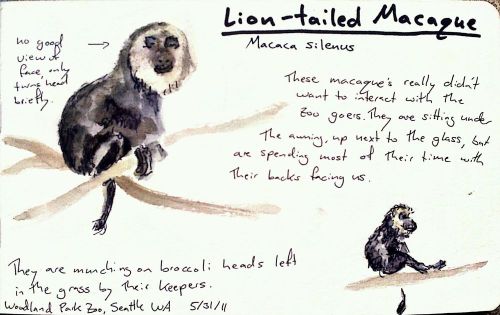 Lion-tailed Macaque
Macaca silenus
no good
view of
face, only
turns head
briefly.
These macaque's really didn't
want to interact with the
zoo goers. They are sitting under
The awning, up next to the glass, but
are spending most of their time with
their backs facing us.
They are munching on broccoli heads left
in the grass by their keepers.
Woodland Park Zoo, Seattle WA 5/31/11